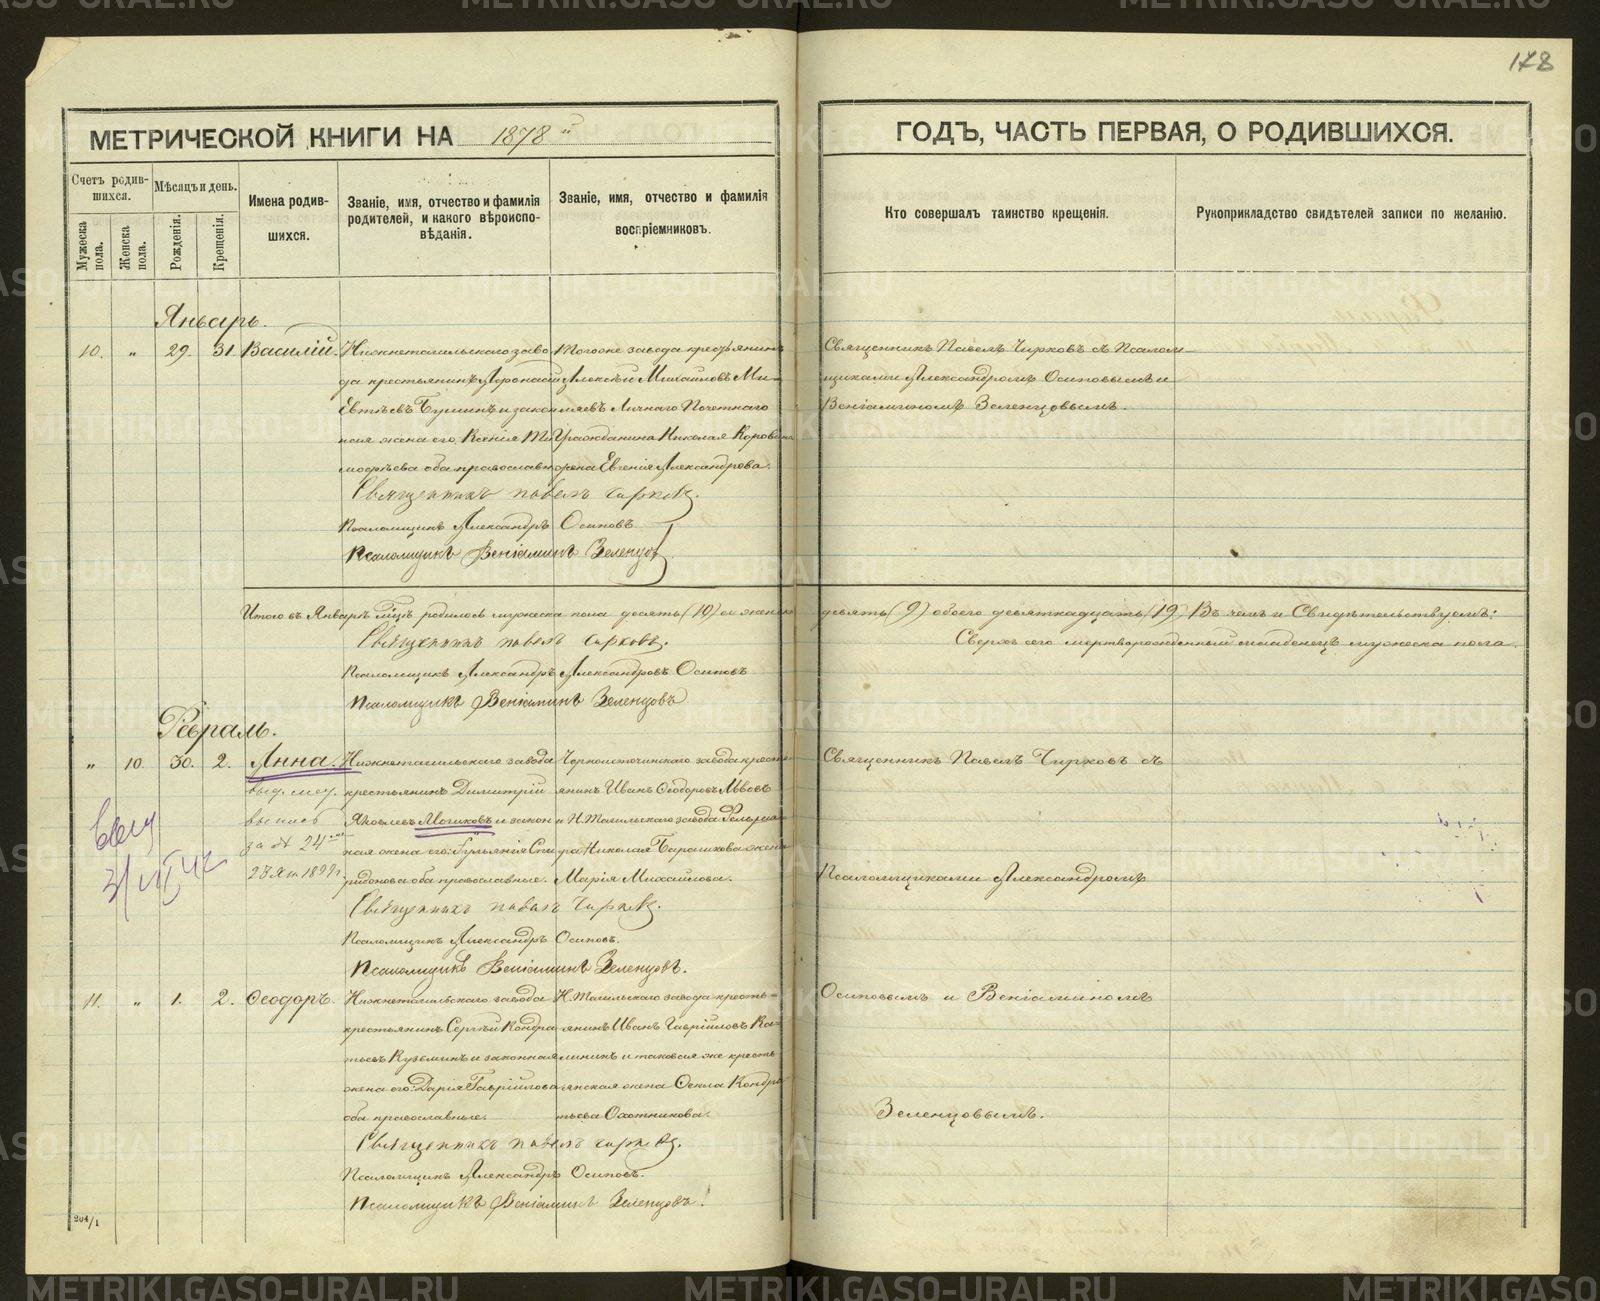 178
МЕТРИЧЕСКОЙ КНИГИ НА 1878й
ГОДЪ, ЧАСТЬ ПЕРВАЯ, О РОДИВШИХСЯ.
Счетъ родив-
шихся.
Мужеска пола.
Женска пола.
Мѣсяцъ и день.
Рожденія.
Крещенія.
Имена родив-
шихся.
Званіе, имя, отчество и фамилія
родителей, и какого вѣроиспо-
вѣданія.
Званіе, имя, отчество и фамилія
воспріемниковъ.
Кто совершалъ таинство крещенія.
Рукоприкладство свидѣтелей записи по желанію.
Январь.
10. " 29. 31. Василій.
Нижнетагильскаго заво
да крестьянинъ Афонасій
Евтѣевъ и закон
ная жена его Ксенія Ти
мофѣева оба православн
Тогоже завода крестьянинъ
Алексѣй Михайловъ Ми-
ляевъ Личнаго Почетнаго
Гражданина Николая
жена Евгенія Александрова.
Священникъ Павелъ Чирковъ съ Псалом-
щиками Александромъ Осиповымъ и
Веніаминомъ Зеленцовымъ.
Священникъ Павелъ Чирковъ.
Псаломщикъ Александръ Осиповъ
Псаломщикъ Веніаминъ Зеленцовъ
Итого въ Январѣ м‑цѣ родилось мужеска пола десять (10) женска девять (9) обоего девятнадцать (19) Въ чемъ и Свидѣтельствуемъ:
Сверхъ сего мертворожденный младенецъ мужеска пола.
Священникъ Павелъ Чирковъ.
Псаломщикъ Александръ Александровъ Осиповъ
Псаломщикъ Веніаминъ Зеленцовъ
Февраль.
" 10. 30. 2. Анна.
выд. мет.
выпись
за № 24
Нижнетагильскаго завода
крестьянинъ Димитрій
Яковлевъ и закон
ная жена его: Іульянія Спи
ридонова оба православные.
Черноисточинскаго завода кресть
янинъ Иванъ Ѳеодоровъ Львовъ
и Н. Тагильскаго завода
Николая Барашкова жена
Марія Михайлова.
Священникъ Павелъ Чирковъ съ
Псаломщиками Александромъ
Священникъ Павелъ Чирковъ.
Псаломщикъ Александръ Осиповъ.
Псаломщикъ Веніаминъ Зеленцовъ.
11. " 1. 2. Ѳеодоръ.
Нижнетагильскаго завода
крестьянинъ Сергѣй Кондра
тьевъ Кузьминъ и законная
жена его: Дарія Гавріилова
оба православные.
Н. Тагильскаго завода кресть-
янинъ Иванъ Гавріиловъ Ка-
лининъ и таковая же кресть
янская жена Ѳекла Кондра
тьева Охотникова.
Осиповымъ и Веніаминомъ
Зеленцовымъ.
Священникъ Павелъ Чирковъ.
Псаломщикъ Александръ Осиповъ.
Псаломщикъ Веніаминъ Зеленцовъ.
204/1
METRIKI.GASO-URAL.RU